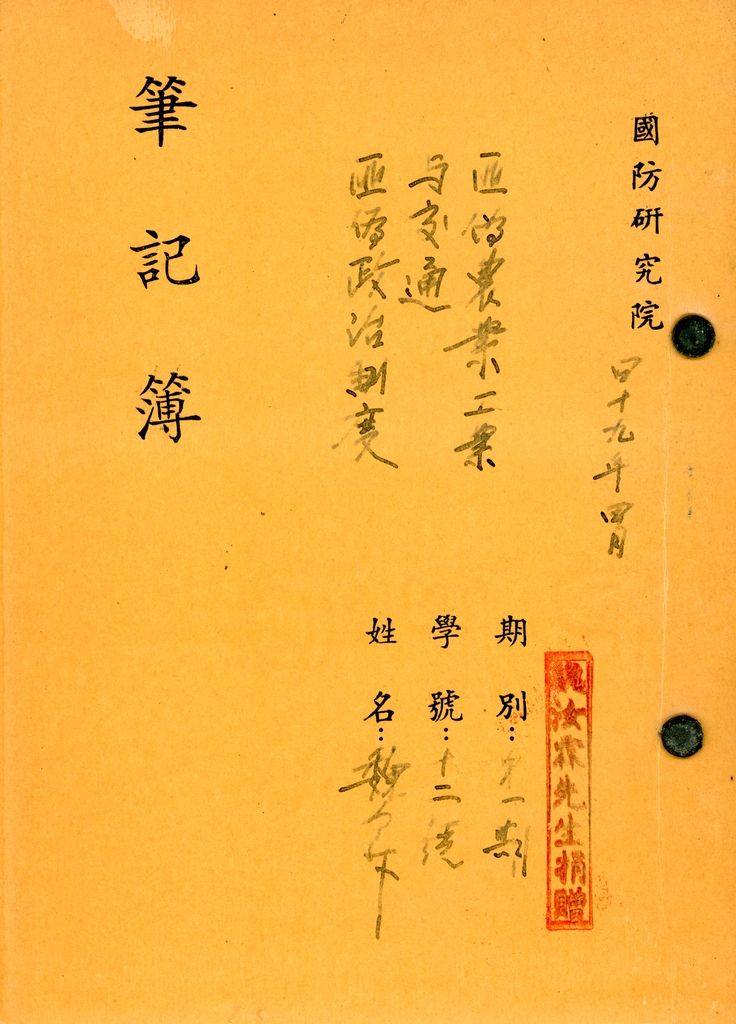 國防研究院
四十九年四月
匪偽農業工業
与交通
匪偽政治制度
筆記簿
魏汝霖先生捐贈
期別：才一期
學號：十二號
姓名：魏